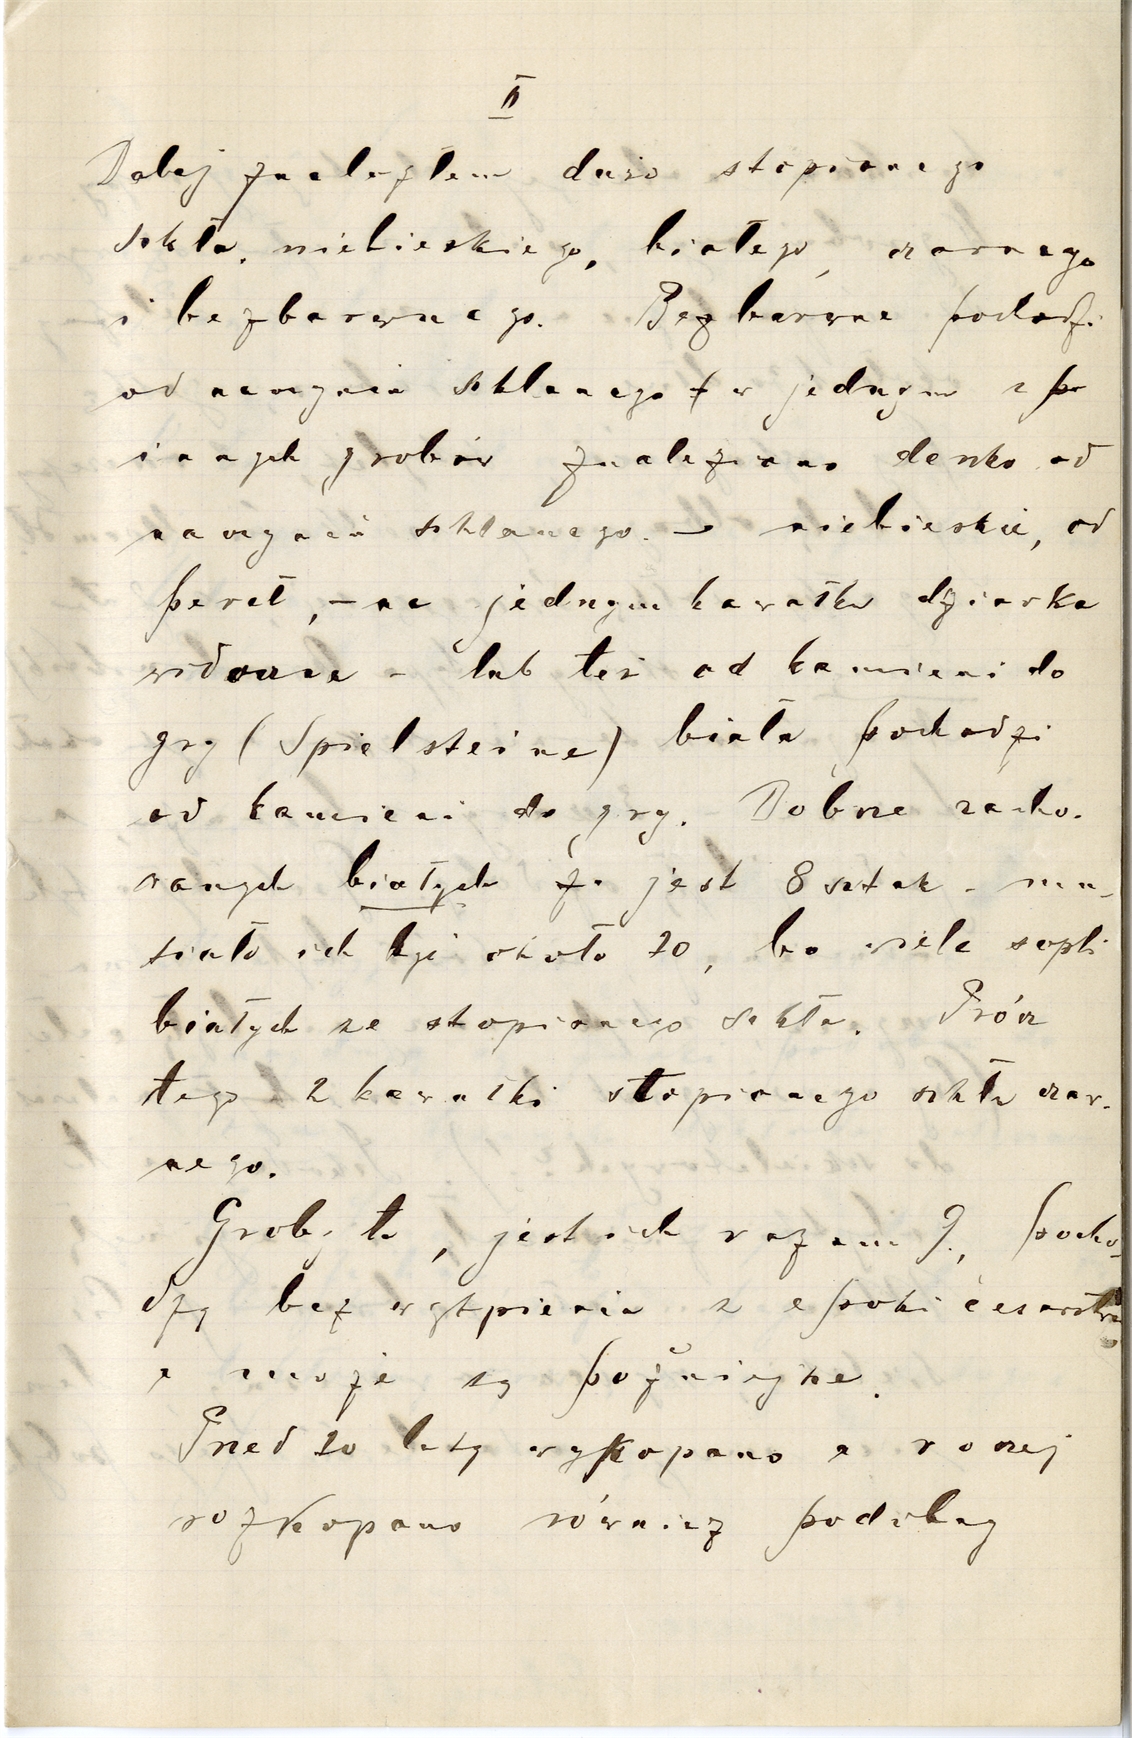 II
Dalej znalazłem dużo stopionego
szkła, niebieskiego, białego, czarnego
i bezbarwnego. Bezbarwne pochodzi
od naczynia szklanego (w jednym z po
innych grobów znaleziono denko od
naczynia szklanego. — niebieskie, od
pereł, — na jednym kawałku dziurka
widoczna — lub też od kamieni do
gry (Spielsteine) biała pochodzi
od kamieni do gry. Dobrze zacho-
wanych białych jest 8 sztuk — mu-
siało ich być około 20, bo wiele sopli
białych ze stopionego szkła. Prócz
tego 2 kawałki stopionego szkła czar-
nego.
Groby te, jest ich razem 9., pocho-
dzą bez wątpienia z epoki cesarstwa
a może są późniejsze.
Przed 20 laty wykopano a raczej
rozkopano również podobny